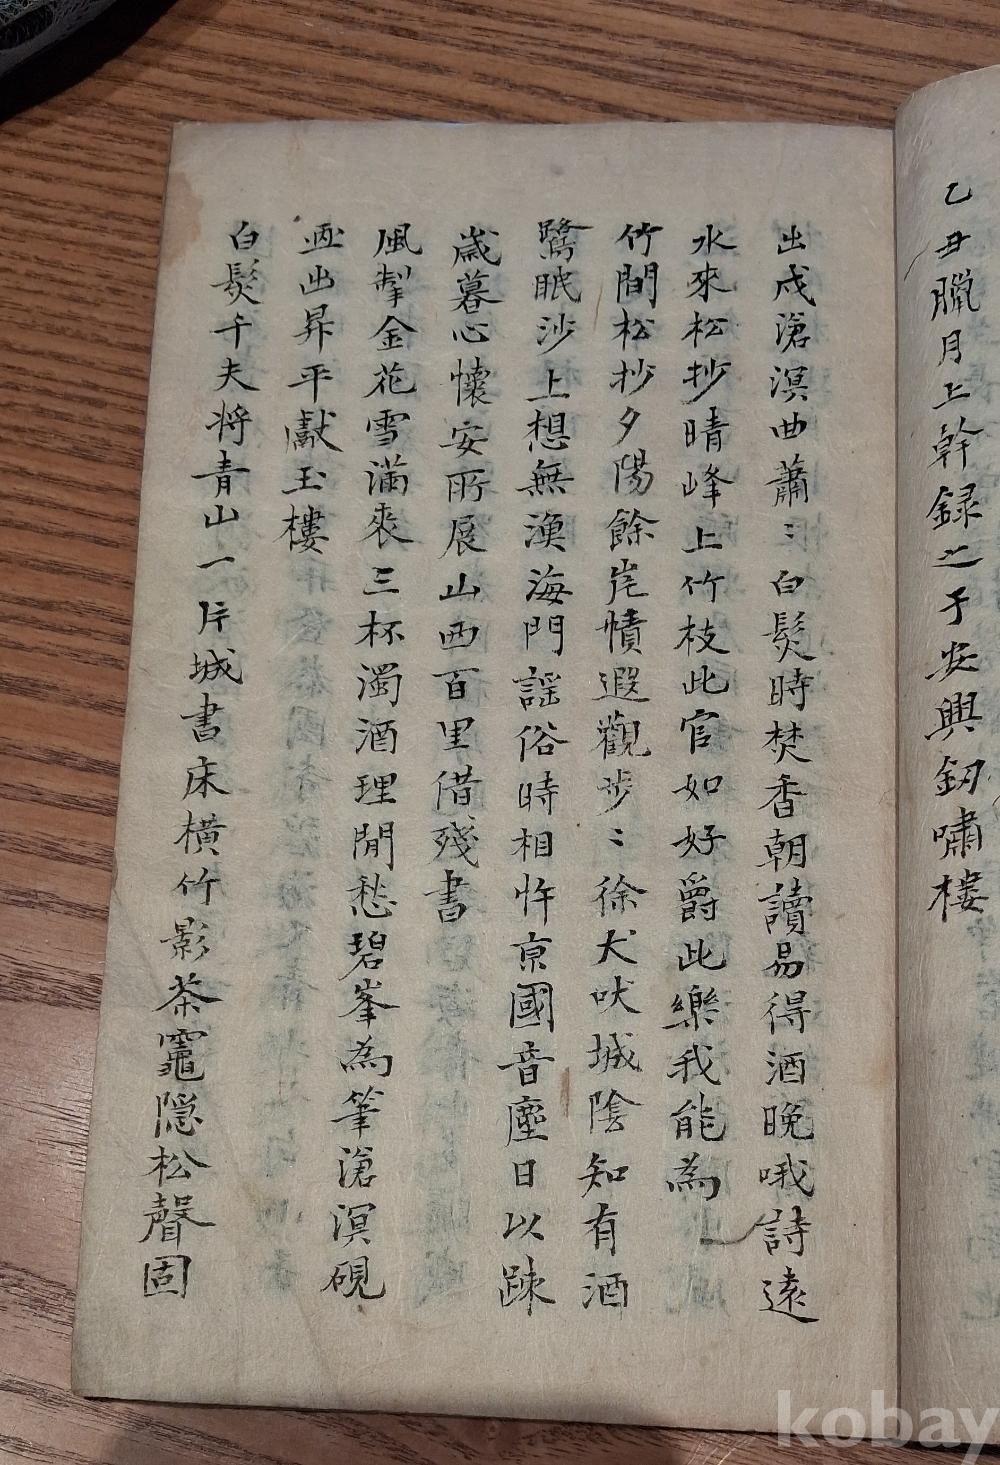 乙丑臘月上幹録之于安興釼嘯樓
出戍滄溟曲蕭〻白髮時焚香朝讀易得酒晩哦詩遠
水來松抄晴峰上竹枝此官如好爵此樂我能為
竹間松抄夕陽餘岸幘遐觀步〻徐犬吠城陰知有酒
鷺眠沙上想無漁海門謡俗時相忤京國音塵日以踈
歲暮心懷安所展山西百里借殘書
風掣金花雪滿裘三杯濁酒理閒愁碧峯為筆滄溟硯
画出昇平獻玉樓
白髮千夫將青山一片城書床橫竹影茶竈隠松聲固
kobay